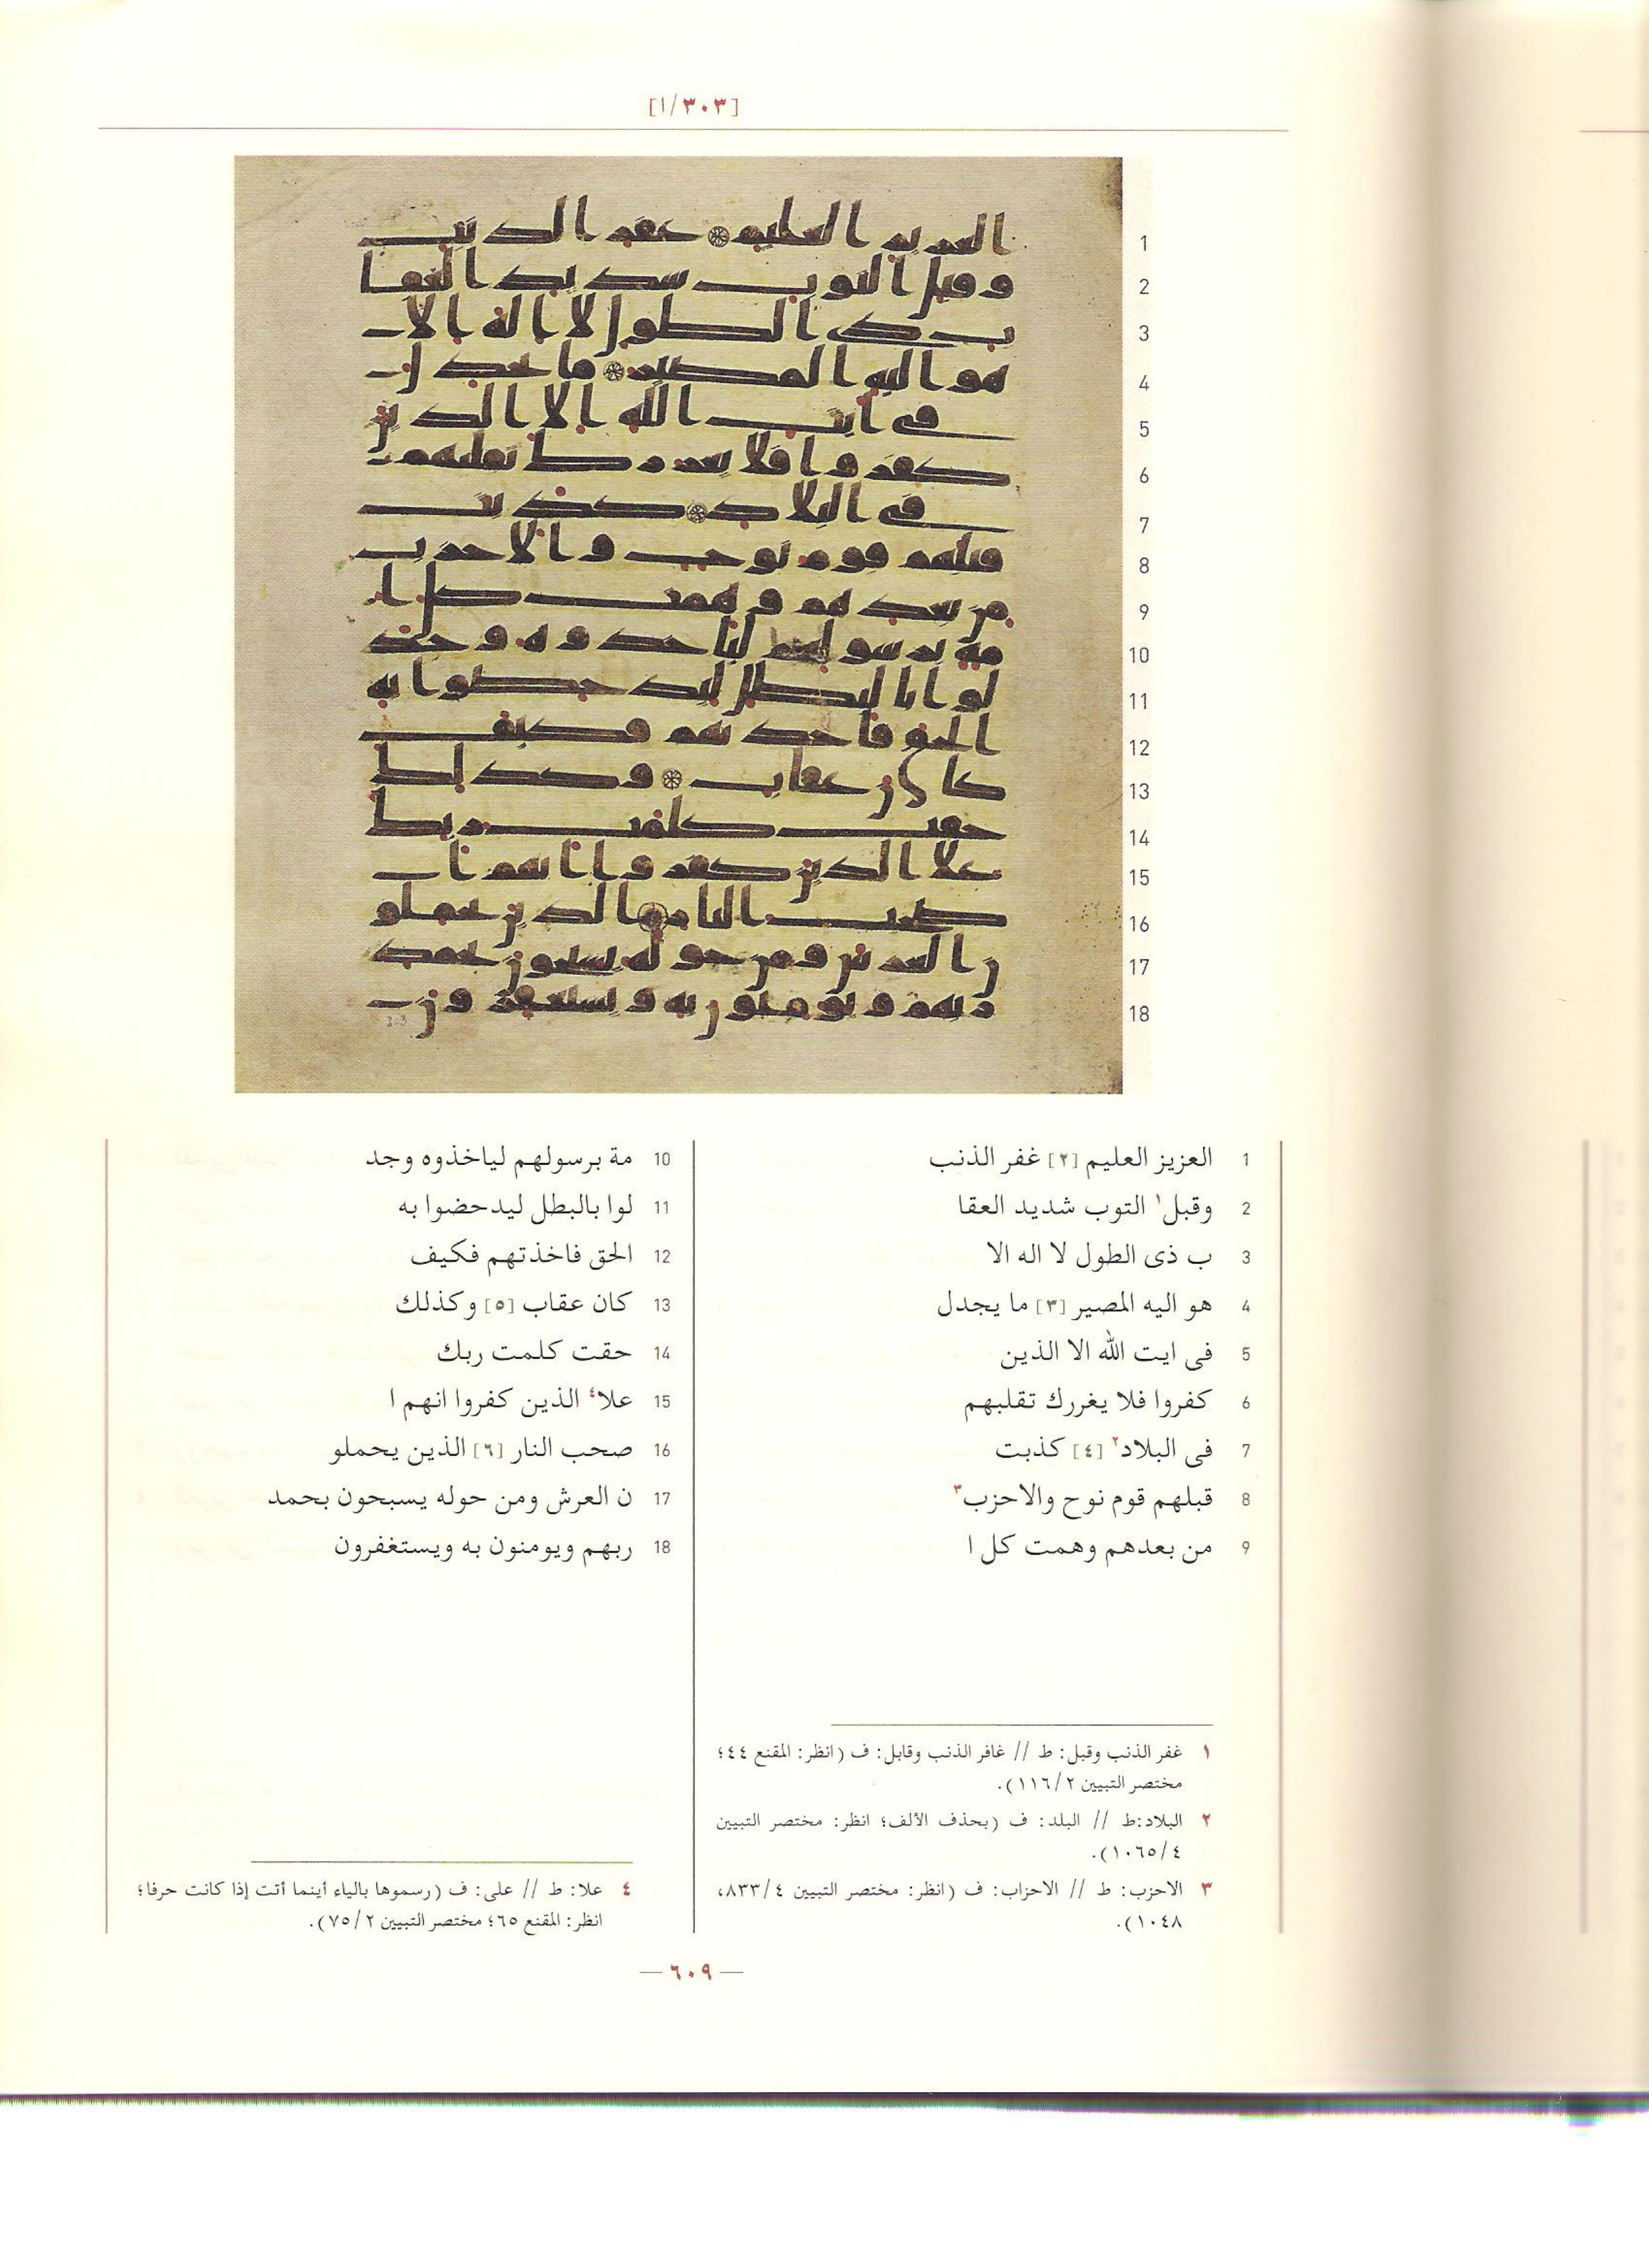 [٣٠٣/١]
1
2
3
4
5
6
7
8
9
10
11
12
13
14
15
16
17
18
1 العزيز العليم [٢] غفر الذنب
2 وقبل١ التوب شديد العقا
3 ب ذى الطول لا اله الا
4 هو اليه المصير [٣] ما يجدل
5 فى ايت الله الا الذين
6 كفروا فلا يغررك تقلبهم
7 فى البلاد٢ [٤] كذبت
8 قبلهم قوم نوح والاحزب٣
9 من بعدهم وهمت كل ا
10 مة برسولهم لياخذوه وجد
11 لوا بالبطل ليدحضوا به
12 الحق فاخذتهم فكيف
13 كان عقاب [٥] وكذلك
14 حقت كلمت ربك
15 علا٤ الذين كفروا انهم ا
16 صحب النار [٦] الذين يحملو
17 ن العرش ومن حوله يسبحون بحمد
18 ربهم ويومنون به ويستغفرون
١ غفر الذنب وقبل: ط // غافر الذنب وقابل: ف (انظر: المقنع ٤٤؛
مختصر التبيين ١١٦/٢).
٢ البلاد:ط // البلد: ف (بحذف الألف؛ انظر: مختصر التبيين
١٠٦٥/٤).
٣ الاحزب: ط // الاحزاب: ف (انظر: مختصر التبيين ٨٣٣/٤،
١٠٤٨).
٤ علا: ط // على: ف (رسموها بالياء أينما أتت إذا كانت حرفا؛
انظر: المقنع ٦٥؛ مختصر التبيين ٧٥/٢).
— ٦٠٩ —